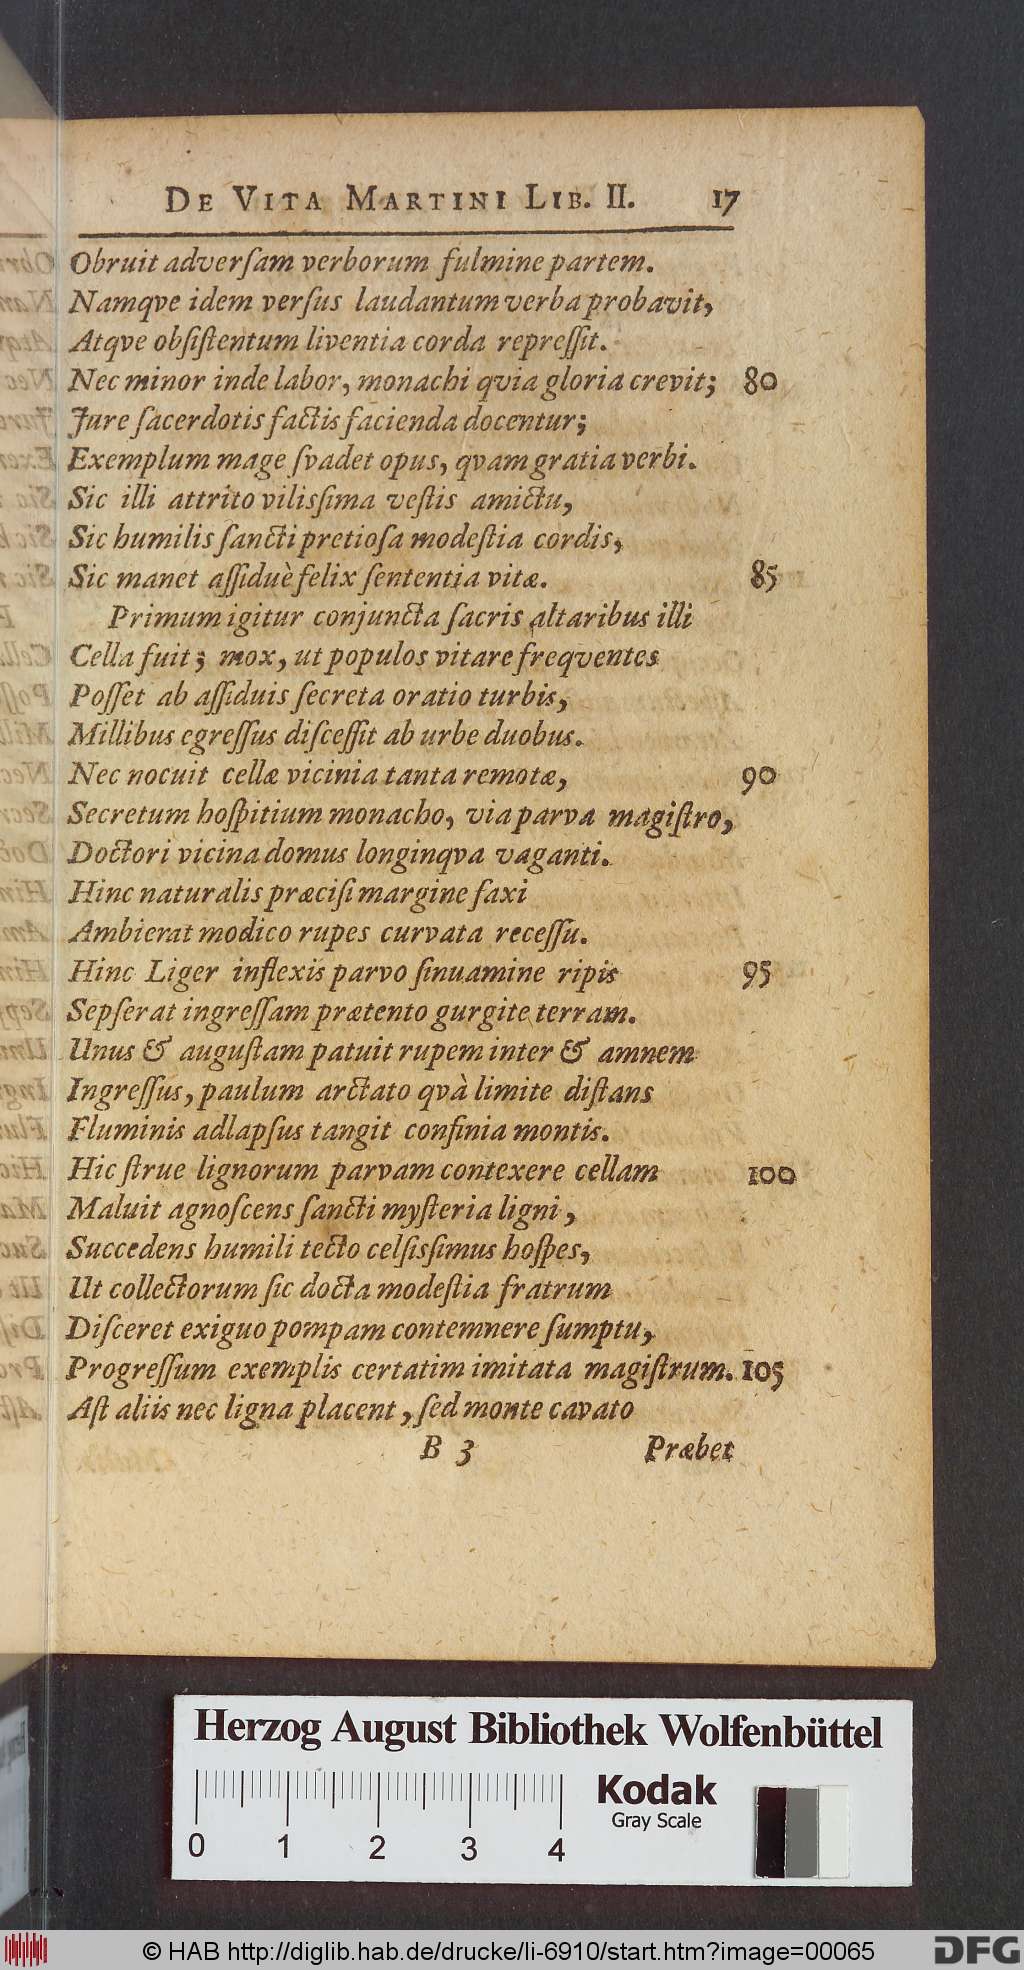 DE VITA MARTINI LIB. II. 17
Obruit adverſam verborum fulmine partem.
Namqve idem verſus laudantum verba probavit,
Atqve obſiſtentum liventia corda repreſſit.
Nec minor inde labor, monachi qvia gloria crevit; 80
Jure ſacerdotis factis facienda docentur;
Exemplum mage ſvadet opus, qvam gratia verbi.
Sic illi attrito vilisſima veſtis amictu,
Sic humilis ſancti pretioſa modeſtia cordis,
Sic manet aſſiduè felix ſententia vitæ. 85
Primum igitur conjuncta ſacris altaribus illi
Cella fuit; mox, ut populos vitare freqventes
Poſſet ab aſſiduis ſecreta oratio turbis,
Millibus egreſſus diſceſſit ab urbe duobus.
Nec nocuit cellæ vicinia tanta remotæ, 90
Secretum hoſpitium monacho, via parva magiſtro,
Doctori vicina domus longinqva vaganti.
Hinc naturalis præciſi margine ſaxi
Ambierat modico rupes curvata receſſu.
Hinc Liger inflexis parvo ſinuamine ripis 95
Sepſerat ingreſſam prætento gurgite terram.
Unus & auguſtam patuit rupem inter & amnem
Ingreſſus, paulum arctato qvà limite diſtans
Fluminis adlapſus tangit confinia montis.
Hic ſtrue lignorum parvam contexere cellam 100
Maluit agnoſcens ſancti myſteria ligni,
Succedens humili tecto celſisſimus hoſpes,
Ut collectorum ſic docta modeſtia fratrum
Diſceret exiguo pompam contemnere ſumptu,
Progreſſum exemplis certatim imitata magiſtrum. 105
Aſt aliis nec ligna placent, ſed monte cavato
B 3 Præbet
Herzog August Bibliothek Wolfenbüttel
Kodak
Gray Scale
0 1 2 3 4
© HAB http://diglib.hab.de/drucke/li-6910/start.htm?image=00065
DFG